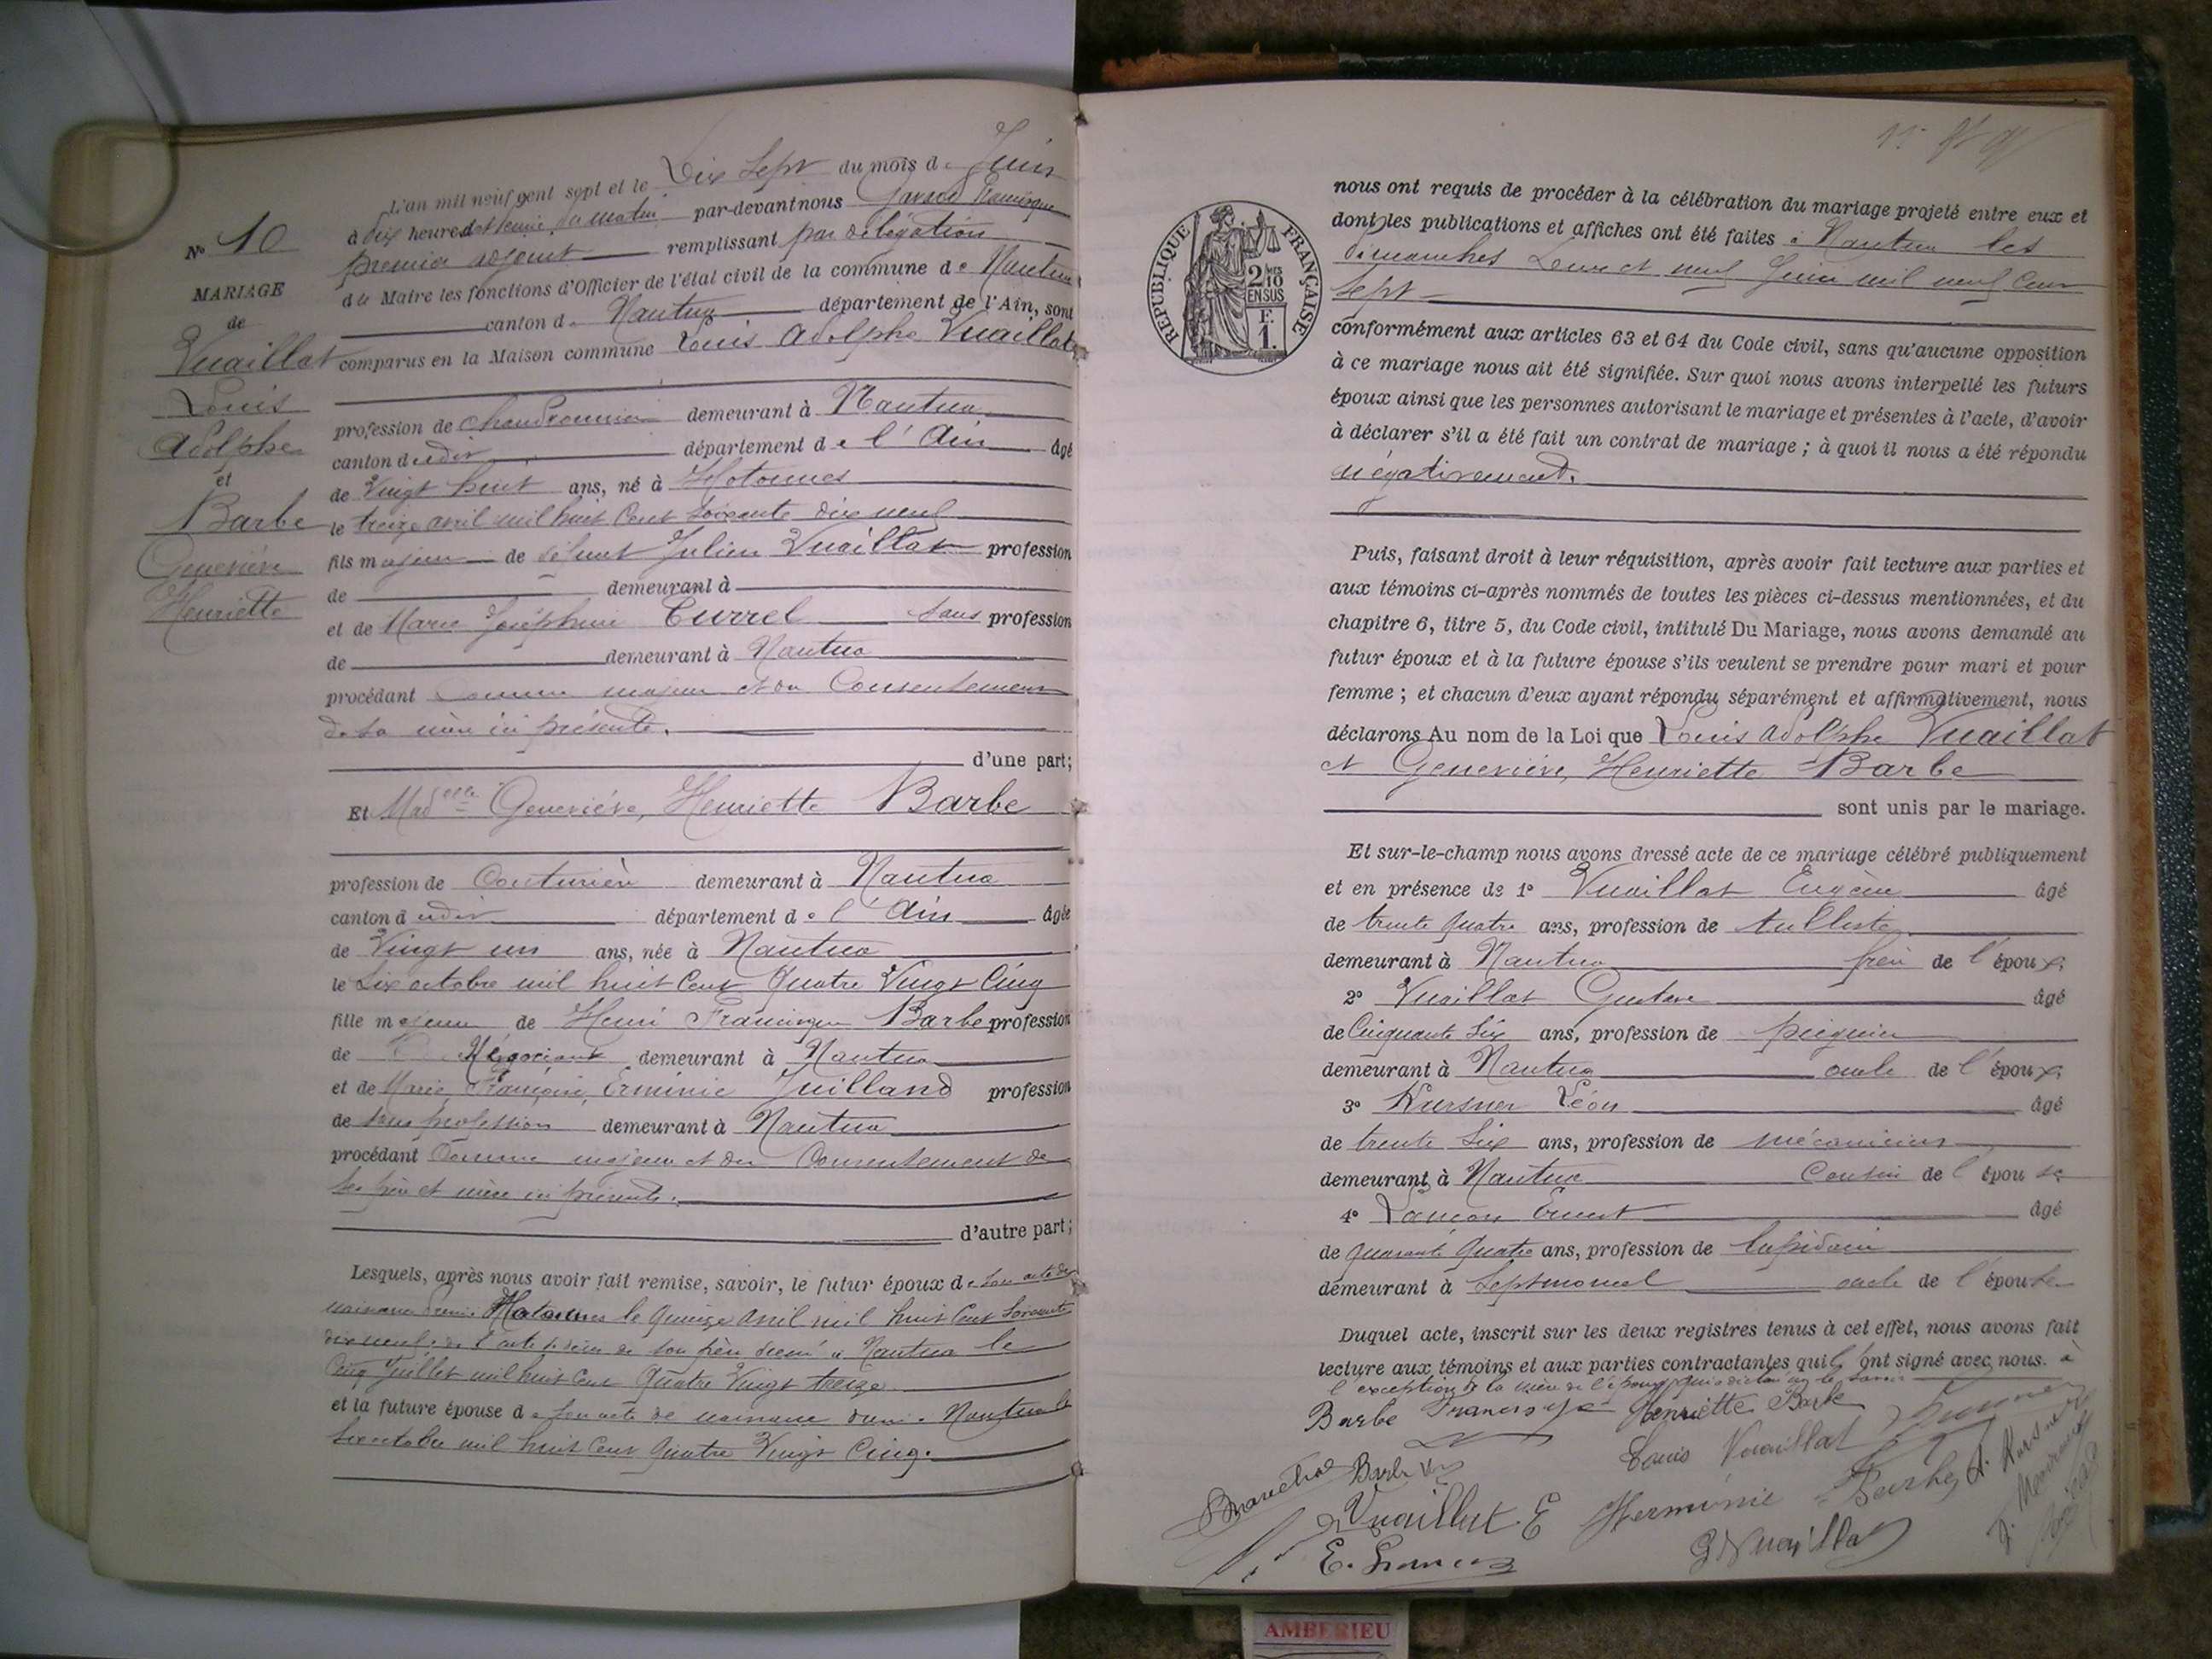 L'an mil neuf cent sept et le Dix Sept du mois de Juin
à dix heures et demie du matin par-devant nous Francisque
premier adjoint remplissant par délégation
du Maire les fonctions d'Officier de l'état civil de la commune de Nantua
canton de Nantua département de l'Ain, sont
comparus en la Maison commune Louis Adolphe Vuaillat
N° 10
MARIAGE
de
Vuaillat
Louis
Adolphe
et
Barbe
Geneviève
Henriette
profession de chaudronnier demeurant à Nantua
canton dudit département de l'Ain âgé
de Vingt huit ans, né à Hotonnes
le treize avril mil huit Cent Soixante dix neuf
fils majeur de défunt Julien Vuaillat profession
de demeurant à
et de Marie Joséphine Currel sans profession
de demeurant à Nantua
procédant Comme majeur et du Consentement
de sa mère ici présente.
d'une part;
Et Madelle Geneviève, Henriette Barbe
profession de Couturière demeurant à Nantua
canton dudit département de l'Ain âgée
de Vingt un ans, née à Nantua
le Six octobre mil huit Cent Quatre Vingt Cinq
fille majeure de Henri Francisque Barbe profession
de Négociant demeurant à Nantua
et de Marie, Françoise, Erminie Juilland profession
de sans profession demeurant à Nantua
procédant Comme majeure et du Consentement de
ses père et mère ici présents.
d'autre part;
Lesquels, après nous avoir fait remise, savoir, le futur époux de son acte de
naissance dressé à Hotonnes le quinze avril mil huit Cent Soixante
dix neuf, de l'acte de décès de son père décédé à Nantua le
Cinq Juillet mil huit Cent Quatre Vingt treize
et la future épouse de son acte de naissance dressé à Nantua le
Six octobre mil huit Cent Quatre Vingt Cinq.
RÉPUBLIQUE FRANÇAISE
2/10
EN SUS
F.
1.
nous ont requis de procéder à la célébration du mariage projeté entre eux et
dont les publications et affiches ont été faites à Nantua les
dimanches Deux et neuf Juin mil neuf Cent
Sept
conformément aux articles 63 et 64 du Code civil, sans qu'aucune opposition
à ce mariage nous ait été signifiée. Sur quoi nous avons interpellé les futurs
époux ainsi que les personnes autorisant le mariage et présentes à l'acte, d'avoir
à déclarer s'il a été fait un contrat de mariage ; à quoi il nous a été répondu
négativement.
Puis, faisant droit à leur réquisition, après avoir fait lecture aux parties et
aux témoins ci-après nommés de toutes les pièces ci-dessus mentionnées, et du
chapitre 6, titre 5, du Code civil, intitulé Du Mariage, nous avons demandé au
futur époux et à la future épouse s'ils veulent se prendre pour mari et pour
femme ; et chacun d'eux ayant répondu séparément et affirmativement, nous
déclarons Au nom de la Loi que Louis Adolphe Vuaillat
et Geneviève, Henriette Barbe
sont unis par le mariage.
Et sur-le-champ nous avons dressé acte de ce mariage célébré publiquement
et en présence de 1° Vuaillat Eugène âgé
de trente quatre ans, profession de tulliste
demeurant à Nantua frère de l'époux;
2° Vuaillat Gustave âgé
de Cinquante Six ans, profession de peigneur
demeurant à Nantua oncle de l'époux;
3° Kursner Léon âgé
de trente Six ans, profession de mécanicien
demeurant à Nantua Cousin de l'épouse
4° Lançon Ernest âgé
de quarante quatre ans, profession de lapidaire
demeurant à Septmoncel oncle de l'épouse
Duquel acte, inscrit sur les deux registres tenus à cet effet, nous avons fait
lecture aux témoins et aux parties contractantes qui l'ont signé avec nous. à
l'exception de la mère de l'époux qui a déclaré ne le savoir
Barbe Francisque Henriette Barbe
Louis Vuaillat
Barbe
Vuaillat E Herminie Barbe A. Kursner
E. Lançon G Vuaillat
AMBERIEU